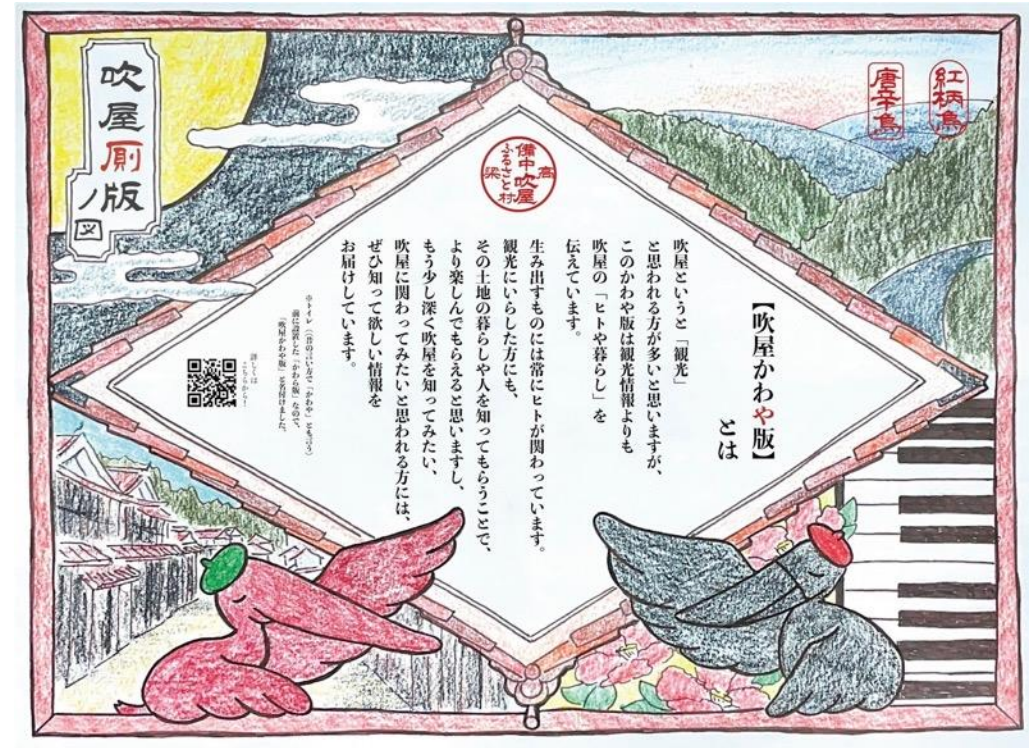 紅柄鳥
唐辛鳥
備中吹屋
高梁
ふるさと村
【吹屋かわや版】
とは
吹屋というと「観光」
と思われる方が多いと思いますが、
このかわや版は観光情報よりも
吹屋の「ヒトや暮らし」を
伝えています。
生み出すものには常にヒトが関わっています。
観光にいらした方にも、
その土地の暮らしや人を知ってもらうことで、
より楽しんでもらえると思いますし、
もう少し深く吹屋を知ってみたい、
吹屋に関わってみたいと思われる方には、
ぜひ知って欲しい情報を
お届けしています。
※トイレ(昔の言い方で「かわや」とも言う)
前に設置した「かわら版」なので、
「吹屋かわや版」と名付けました。
詳しくは
こちらから!
吹屋厠版
ノ図